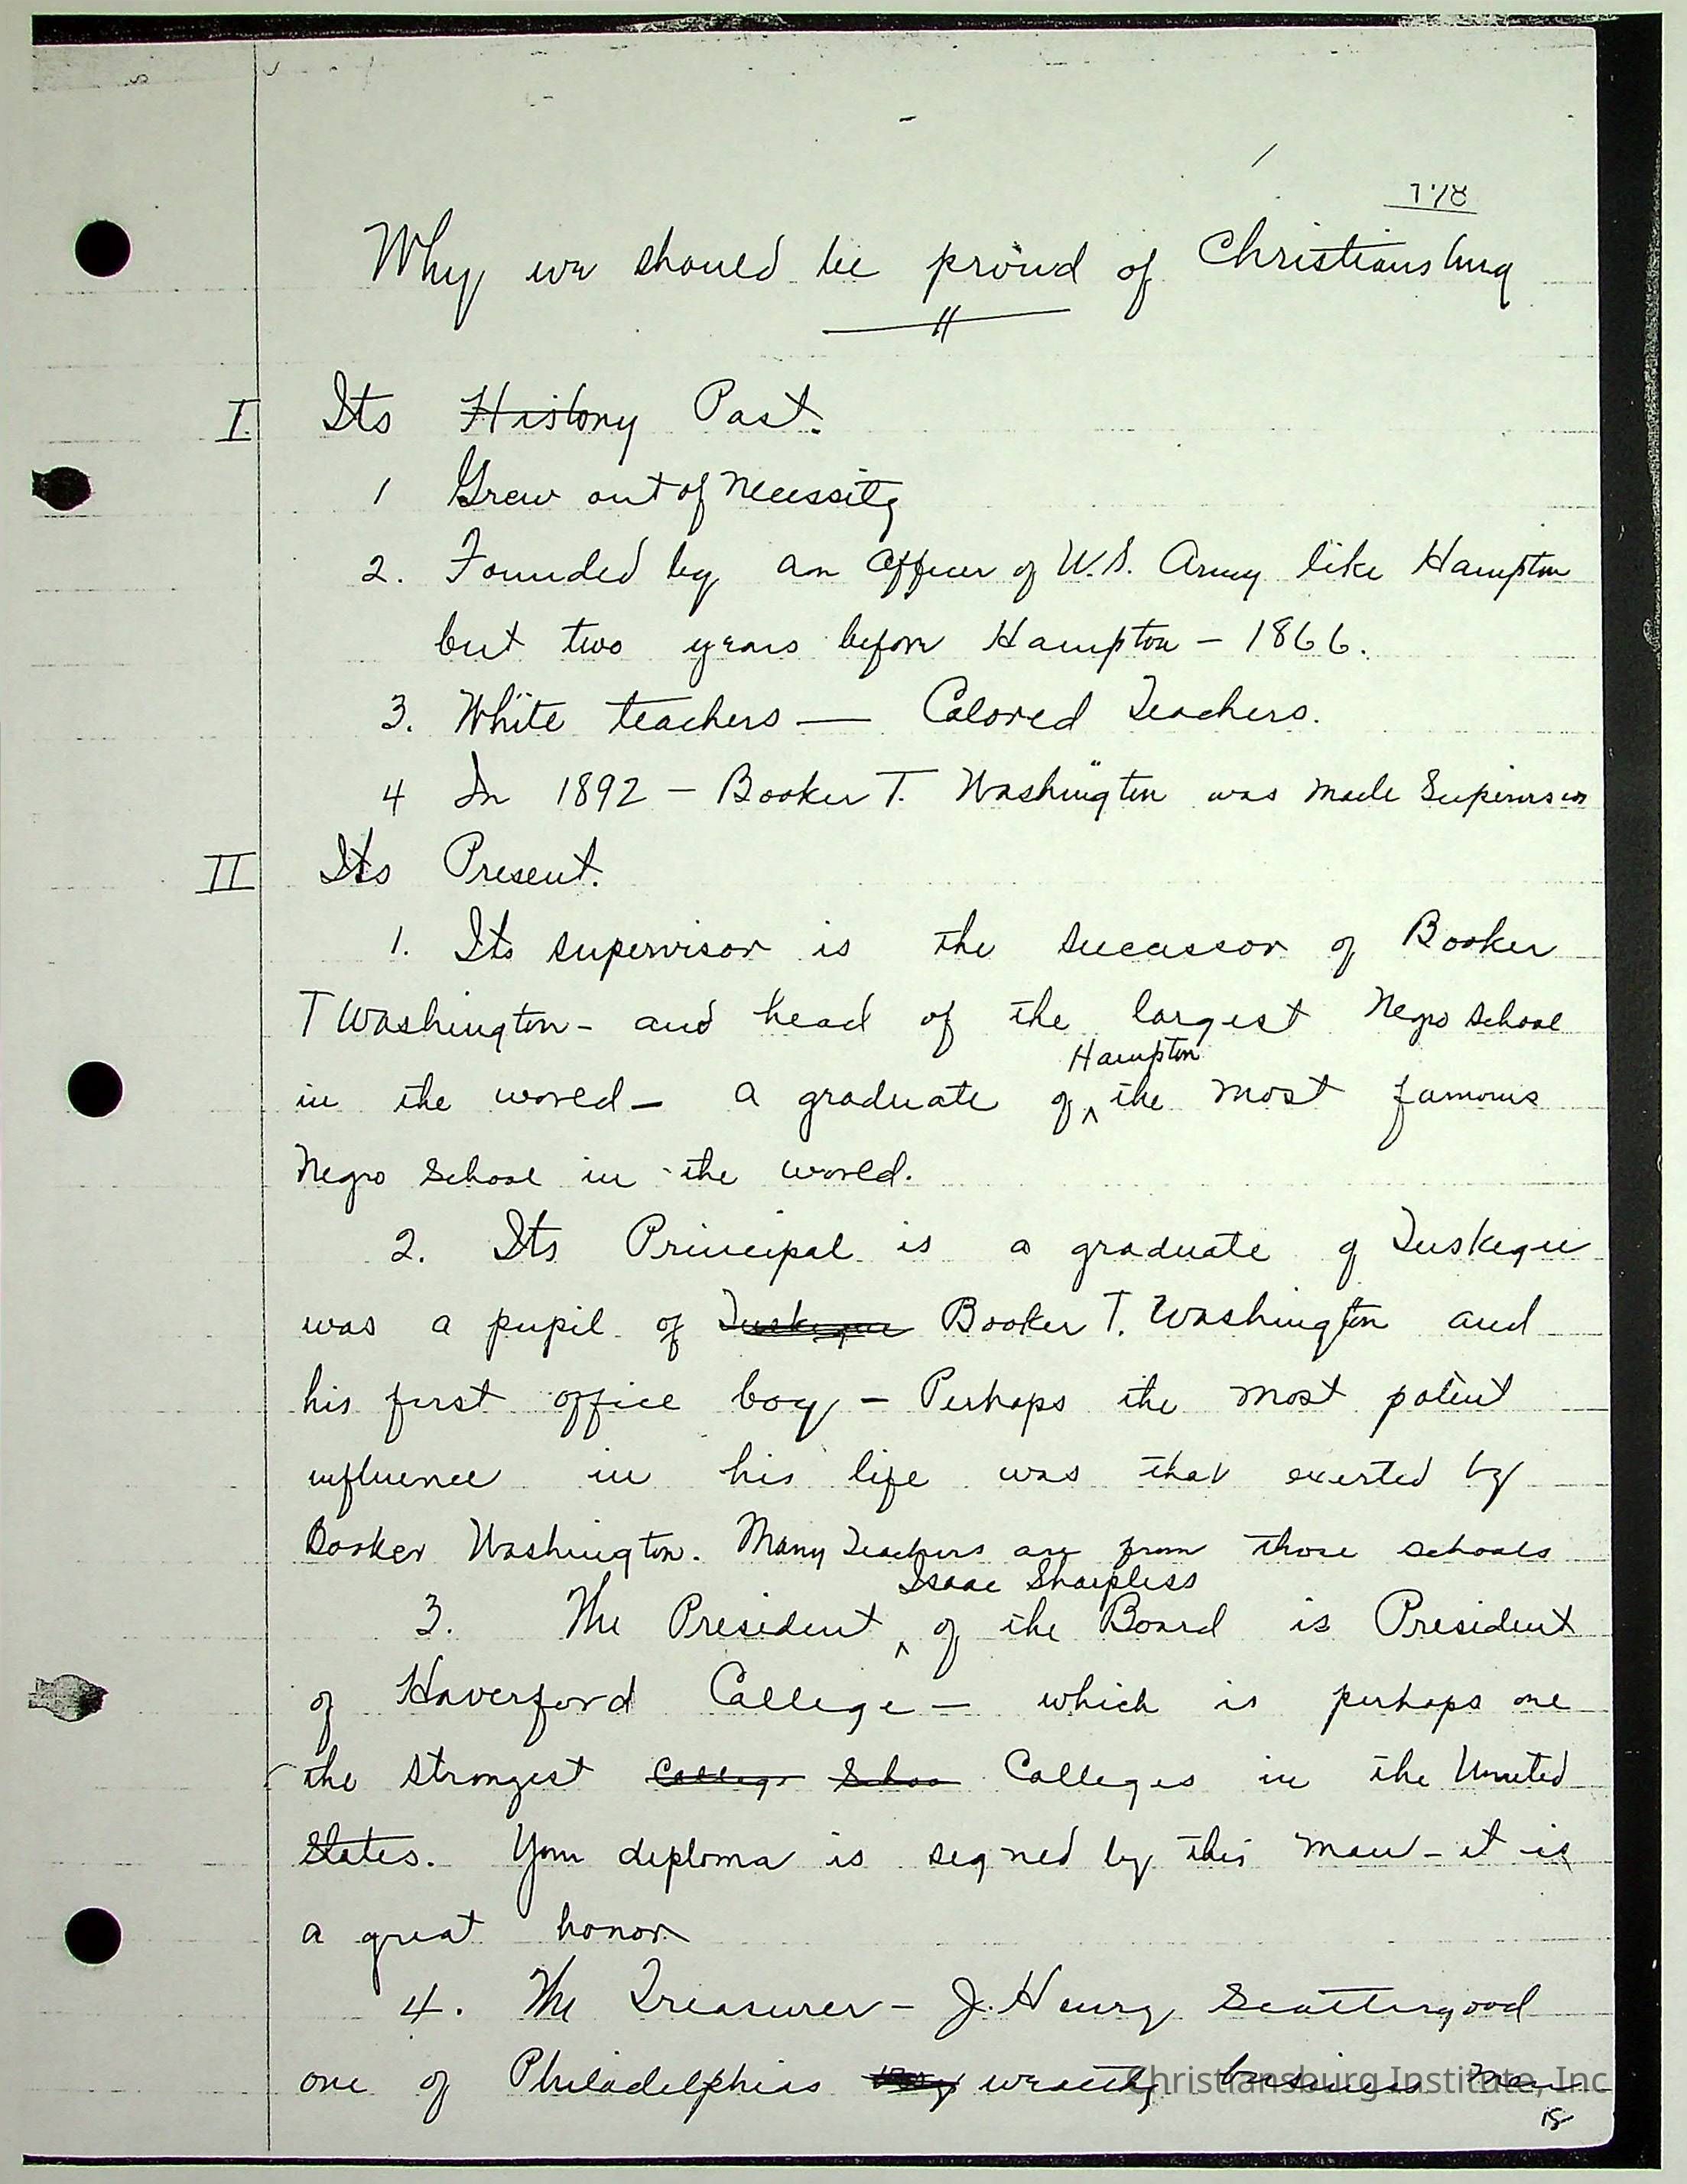 178
Why we should be proud of Christiansburg
I. Its History Past.
1 Grew out of necessity
2. Founded by an officer of U.S. Army like Hampton
but two years before Hampton - 1866.
3. White teachers — Colored Teachers.
4 In 1892 - Booker T. Washington was made Supervisor
II Its Present.
1. Its supervisor is the successor of Booker
T Washington - and head of the largest Negro School
Hampton
in the world - a graduate of ^ the most famous
Negro School in the world.
2. Its Principal is a graduate of Tuskegee
was a pupil of Tuskegee Booker T. Washington and
his first office boy - Perhaps the most potent
influence in his life was that exerted by
Booker Washington. Many Teachers are from those schools
Isaac Sharpless
3. The President ^ of the Board is President
of Haverford College - which is perhaps one
the strongest College Schoo Colleges in the United
States. Your diploma is signed by this man - it is
a great honor.
4. The Treasurer - J. Henry Scattergood
one of Philadelphias wealthy business men
Christiansburg Institute, Inc